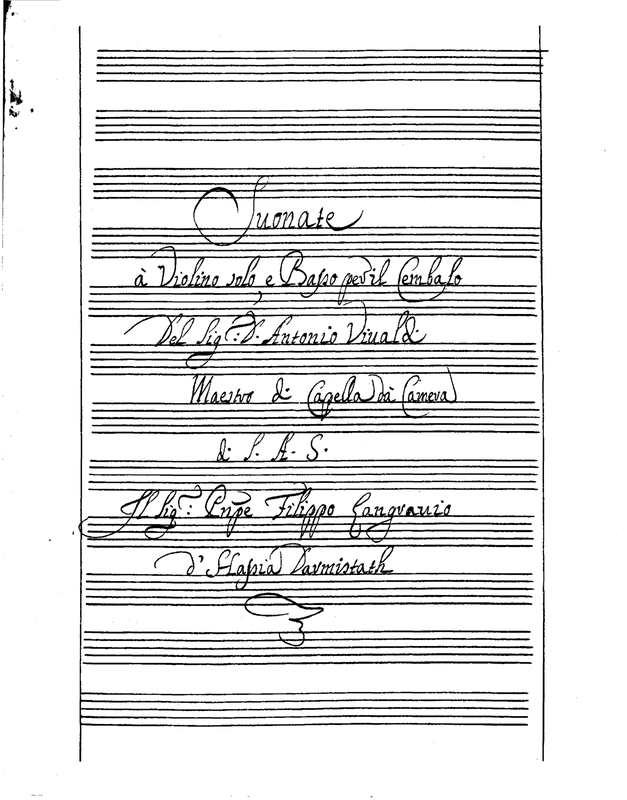 Suonate
à Violino solo e Basso per il Cembalo
Del Sig.r D. Antonio Viualdi
Maestro di Capella dà Camera
di S. A. S.
Il Sig.r Pñpe Filippo Langrauio
d'Hassia Darmistath